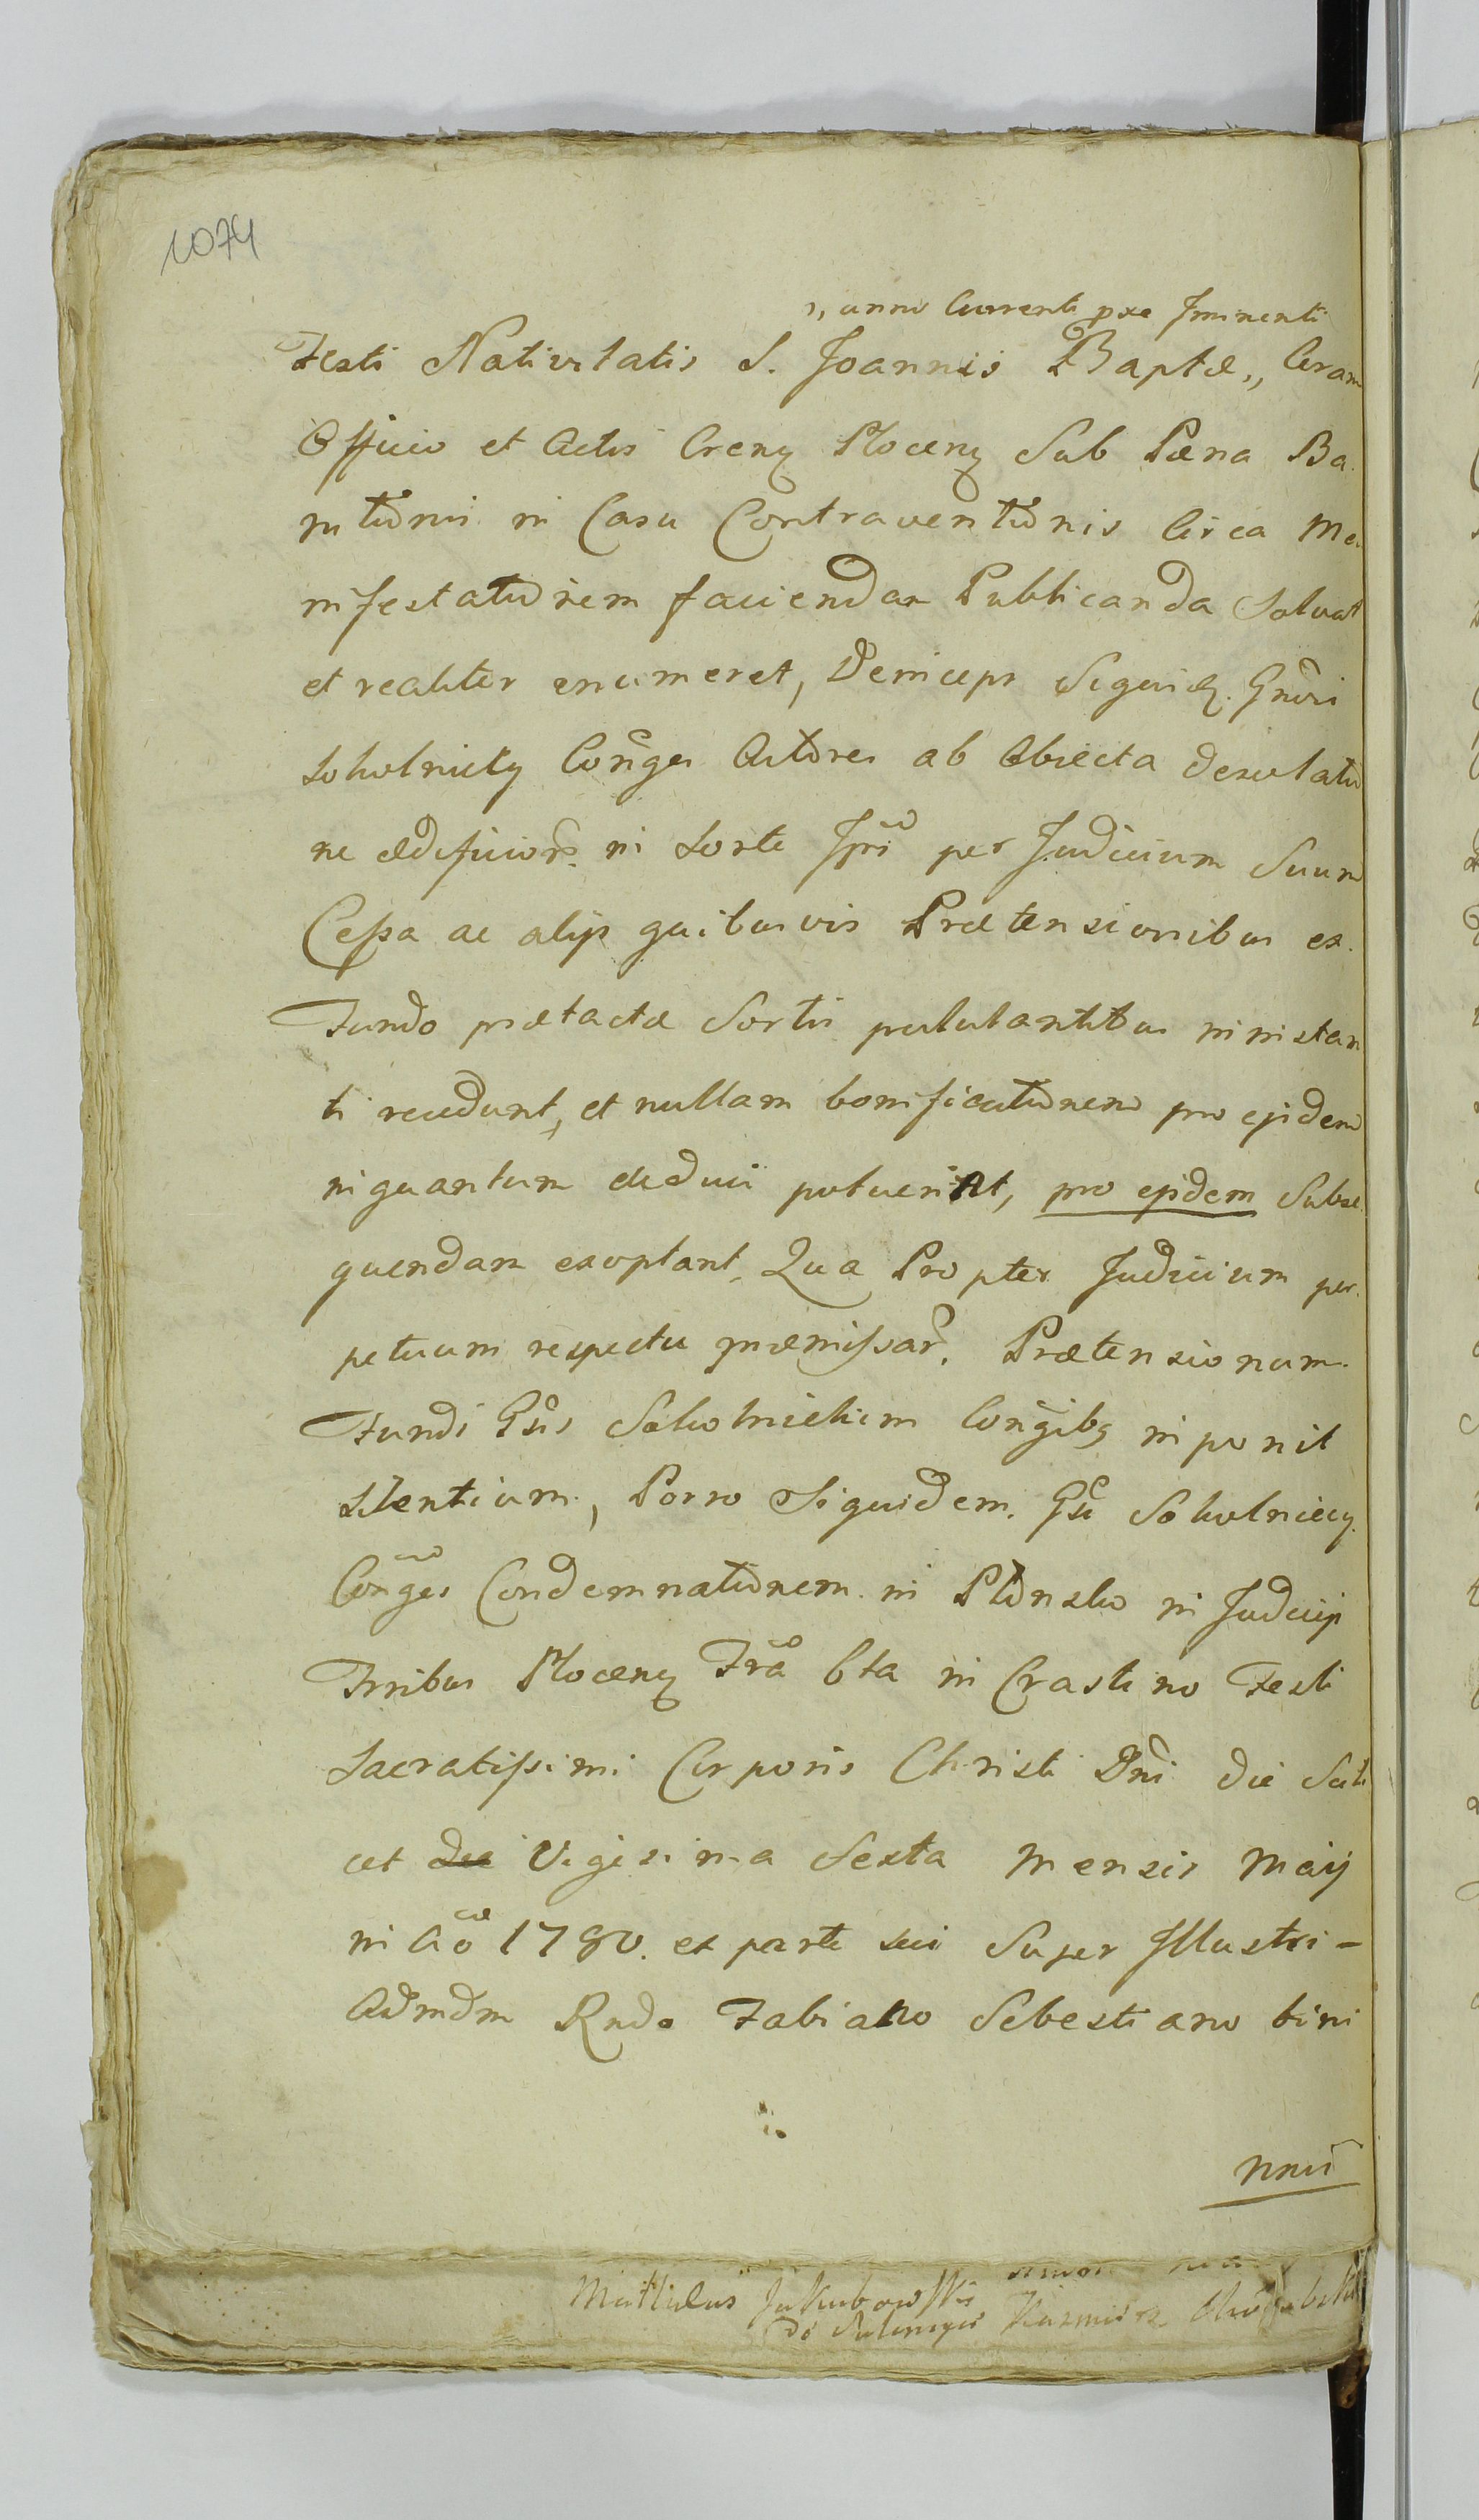 1074
„ anno Currenti prae Iminenti
Festi Nativitatis S. Joannis Baptae „ Coram
Officio et Actis Cren͠ Plocen͠ Sub Paena Ba
nitionis in Casu Contraventionis Circa Ma
nifestationem faciendam Publicanda Solvat
et realiter enumeret, Deinceps Siquid. Gnõsi
Sokolniccy Conges Actores ab Obiecta desolatio
ne aedificior. in Sorte Ipsi per Judicium Suum
Cessa ac alijs quibusvis Praetensionibus ex
Fundo praetactae Sortis pululantibus in instan
ti recedunt, et nullam bonificationem pro ejsdem
in quantum deduci potuerint, pro ejsdem Subse
quendam exoptant, Qua Propter Judicium per
petuum respectu praemissar. Praetensionum
Fundi Gsis Sokolnickim Congibg imponit
Silentium, Porro Siquidem Gsi Sokolniccy
Conges Condemnationem in Plonsko in Judicijs
Trribus Plocen͠ Fra͠ 6ta in Crastino Festi
Sacratissimi Corporis Christi Dni die Scili
cet die Vigesima Sexta Mensis Maij
in Aõ 1780. ex parte sui Super Illustri-
Admdm Rndo Fabiano Sebestiano bini
nnii
Mattheus Jakubowski
Kazmierz